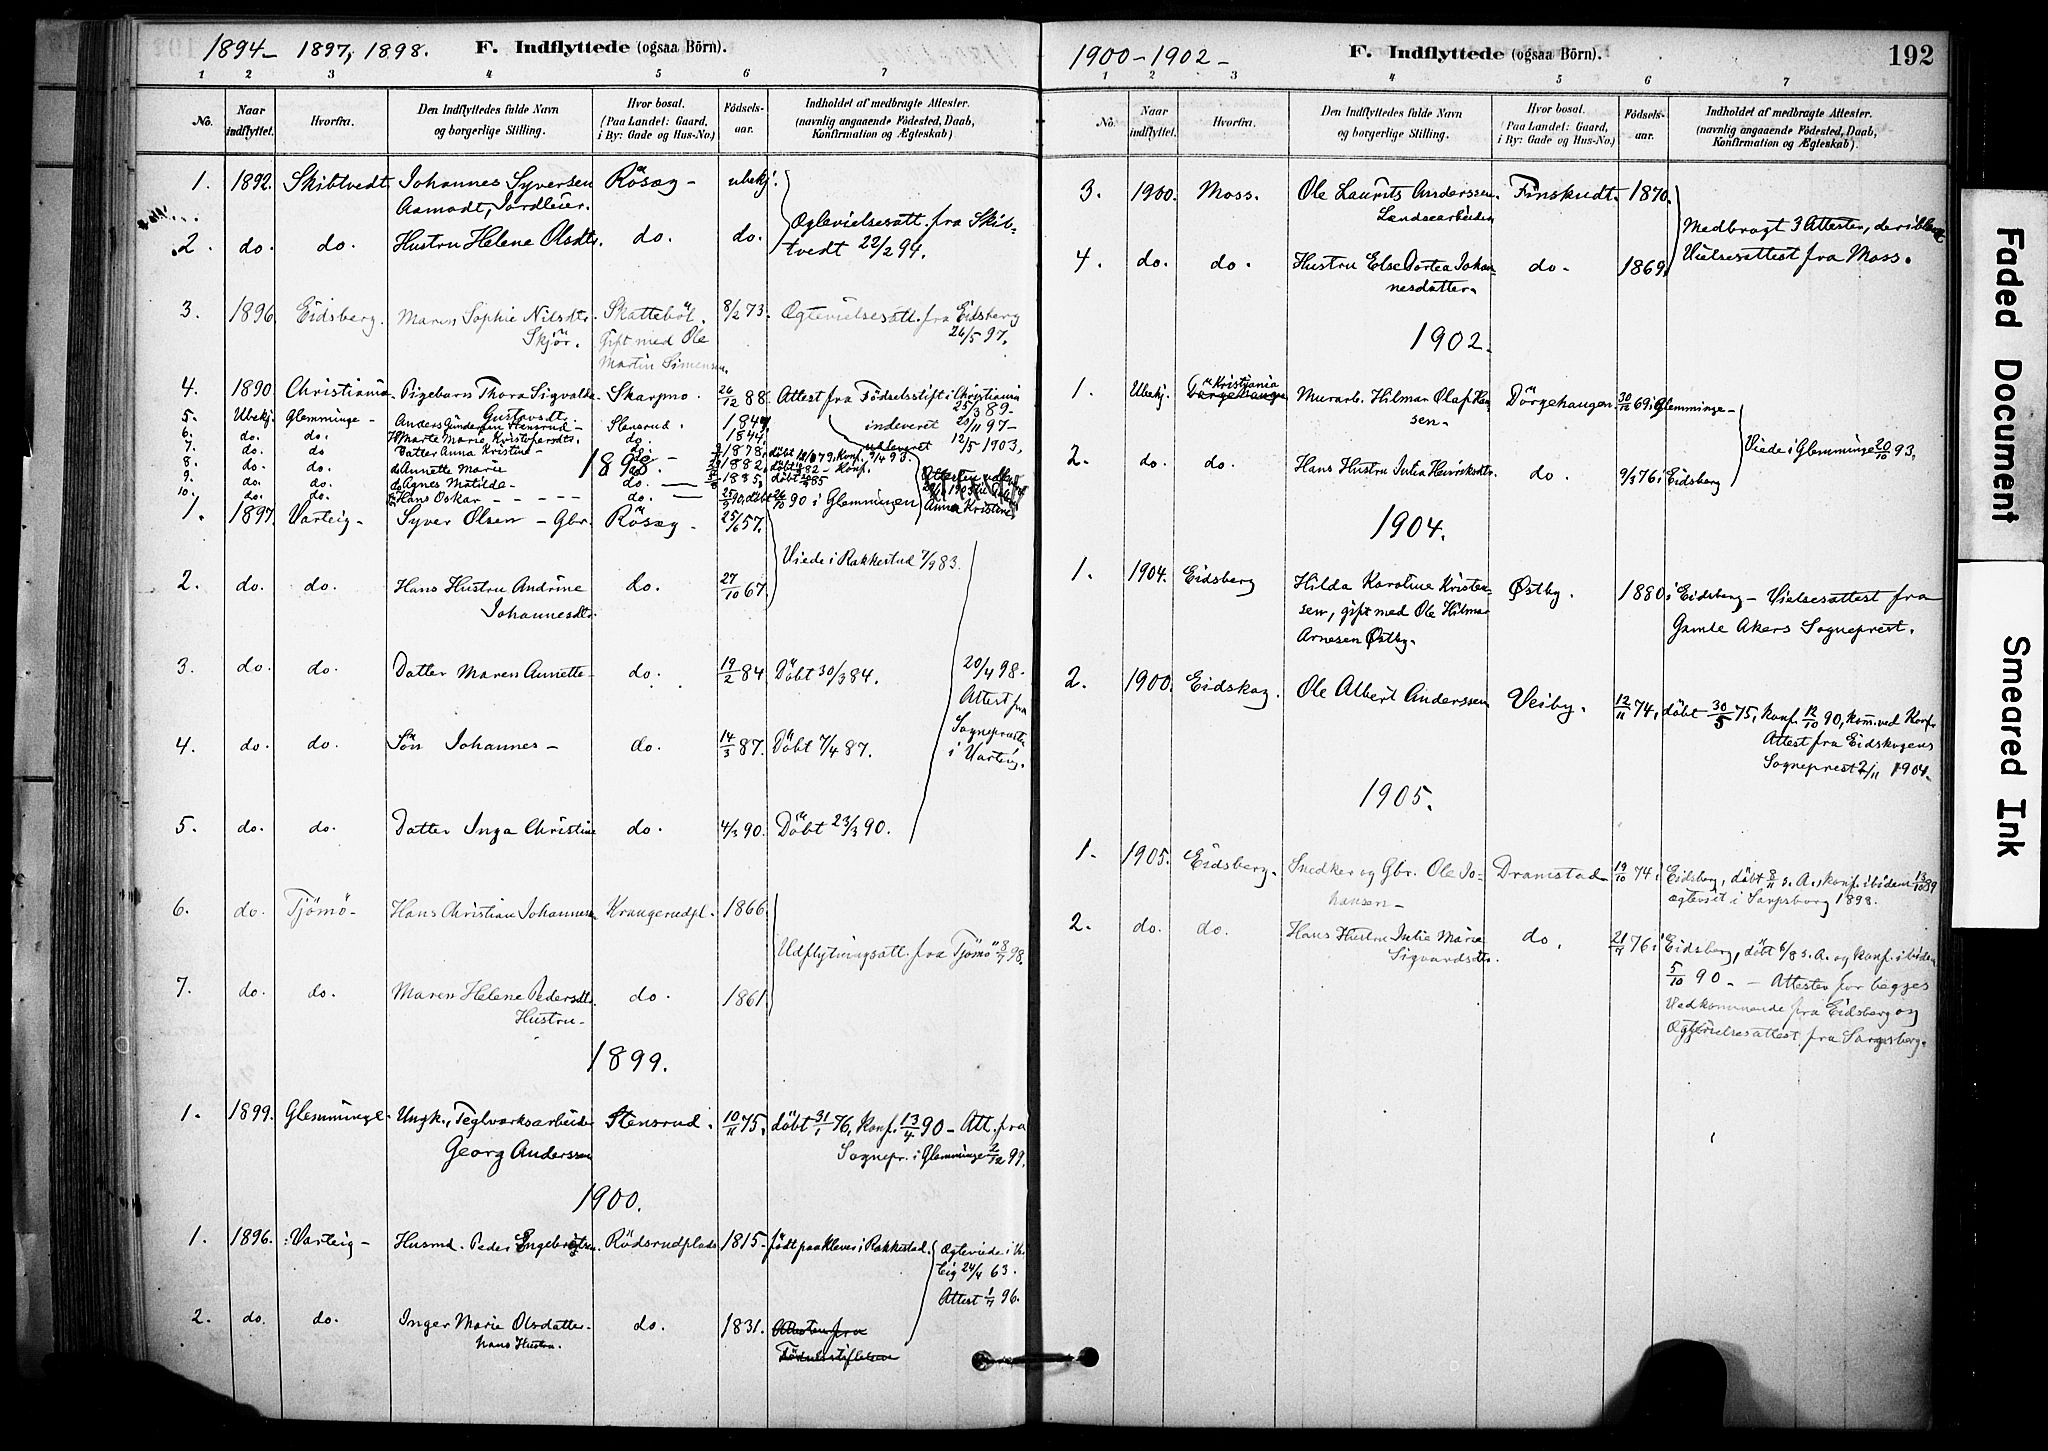 1894- 1897, 1898. F. Indflyttede (ogsaa Börn).
1 2 3 4 5 6 7
No. Naar indflyttet. Hvorfra. Den Indflyttedes fulde Navn og borgerlige Stilling. Hvor bosat. (Paa Landet: Gaard, i By: Gade og Hus-No.) Födsels-aar. Indholdet af medbragte Attester. (navnlig angaaende Födested, Daab, Konfirmation og Ægteskab)
1. 1892. Skibtvedt. Johannes Syversen Rösæg - ubekj.
Aamodt, Jordleier.
2. do. do. Hustru Helene Olsdtr. do. do. Ægtevielsesatt. fra Skib-
tvedt 22/2 94.
3. 1896 Eidsberg. Maren Sophie Nilsdtr. Skattebøl. 8/2 73. Ægtevielsesatt. fra Eidsberg
Skjör. Gift med Ole 26/5 97.
Martin Simensen.
4. 1890. Christiania. Pigebarn Thora Sigvalda Skarpno. 26/12 88. Attest fra Fødselsstift. i Christiania
Gustavsdtr. 25/3 89-
5. Ubekj. Glemminge - Anders Gundersen Stensrud - Stensrud. 1849. indeveret 23/11 97-
6. do. do. H. Marte Marie Kristofersdtr. do. 1844. udleveret 12/5 1903.
7. do. do Datter Anna Kristine - do. - 1878. döbt 12/1 79, Konf. 9/4 93.
1898.
8. do. do. do Annette Marie do. 1882. döbt 82 - Konf.
9. do. do. do Agnes Matilde - do. 1885. döbt 85
10. do. do. Hans Oskar - - - - - do. 25/9 90. döbt 26/10 90 i Glemmingen
1. 1897. Varteig - Syver Olsen - Gbr. Rösæg - 25/6 57.
Viede i Rakkestad 7/9 83.
2. do. do. Hans Hustru Andrine do. 27/10 67.
Johannesdtr.
3. do. do. Datter Maren Annette - do. 19/2 84 Döbt 30/3 84. 20/4 98.
Attest fra
Sognepresten
i Varteig.
4. do. do. Sön Johannes - do. 14/3 87. Döbt 7/4 87.
5. do. do. Datter Inga Christine do. 4/3 90. Döbt 23/3 90.
6. do. Tjömö - Hans Christian Johannesen Krangerudpl. 1866.
Udflytningsatt. fra Tjömö 8/7 98.
7. do. do. Maren Helene Pedersdtr. do. 1861.
Hustru -
1899.
1. 1899. Glemminge - Ungk., Teglværksarbeider Stensrud. 10/11 75. döbt 31/1 76, Konf. 13/4 90 - Att. fra
Georg Anderssen Sognepr. i Glemminge 2/12 99.
1900.
1. 1896. Varteig - Husmd. Peder Engebretsen. Rödsrudplads 1815. født paa Klever i Rakkestad. Ægteviede i Var-
teig 24/4 63.
Attest 1/7 96.
2. do. do. Inger Marie Olsdatter - do. 1831. Attesten fra
hans Hustru. Födselsstiftelsen
1900-1902- F. Indflyttede (ogsaa Börn). 192
1 2 3 4 5 6 7
No. Naar indflyttet. Hvorfra. Den Indflyttedes fulde Navn og borgerlige Stilling. Hvor bosat. (Paa Landet: Gaard, i By: Gade og Hus-No.) Födsels-aar. Indholdet af medbragte Attester. (navnlig angaaende Födested, Daab, Konfirmation og Ægteskab).
3. 1900. Moss. Ole Laurits Anderssen. Finskudt. 1870.
Landsearbeider Medbragt 3 Attester, deriblandt
4. do. do. Hustru Else Dortea Johan- do. 1869. Vielsesattest fra Moss.
nesdatter.
1902.
1. Ubekj. Kristiania Murarb. Hilmar Olaf Han- Dörgehaugen 30/12 69 i Glemminge -
sen. Viede i Glemminge 20/10 93.
2. do. do. Hans Hustru Julia Henriksdtr. do. 9/3 76 i Eidsberg
1904.
1. 1904. Eidsberg Hilda Karoline Kristen- Østby. 1880 i Eidsberg - Vielsesattest fra
sen, gift med Ole Hilmar Gamle Akers Sogneprest.
Arnesen Østby.
2. 1900. Eidskog. Ole Albert Anderssen Veiby. 12/11 74, döbt 30/5 75, konf. 12/10 90, kom. ved Konf.
Attest fra Eidskogens
Sogneprest 2/11 1904.
1905.
1. 1905. Eidsberg. Snedker og Gbr. Ole Jo- Dramstad - 19/10 74 i Eidsberg, döbt 8/11 s. A., konf. ibidem 13/10 89
hansen - ægteviet i Sarpsborg 1898.
2. do. do. Hans Hustru Julie Marie do. 21/7 76 i Eidsberg, döbt 6/8 s. A. og konf. ibidem
Sigvardsdtr. 5/10 90 - - Attester for begges
Vedkommende fra Eidsberg og
Ægtevielsesattest fra Sarpsborg.
Faded Document
Smeared Ink